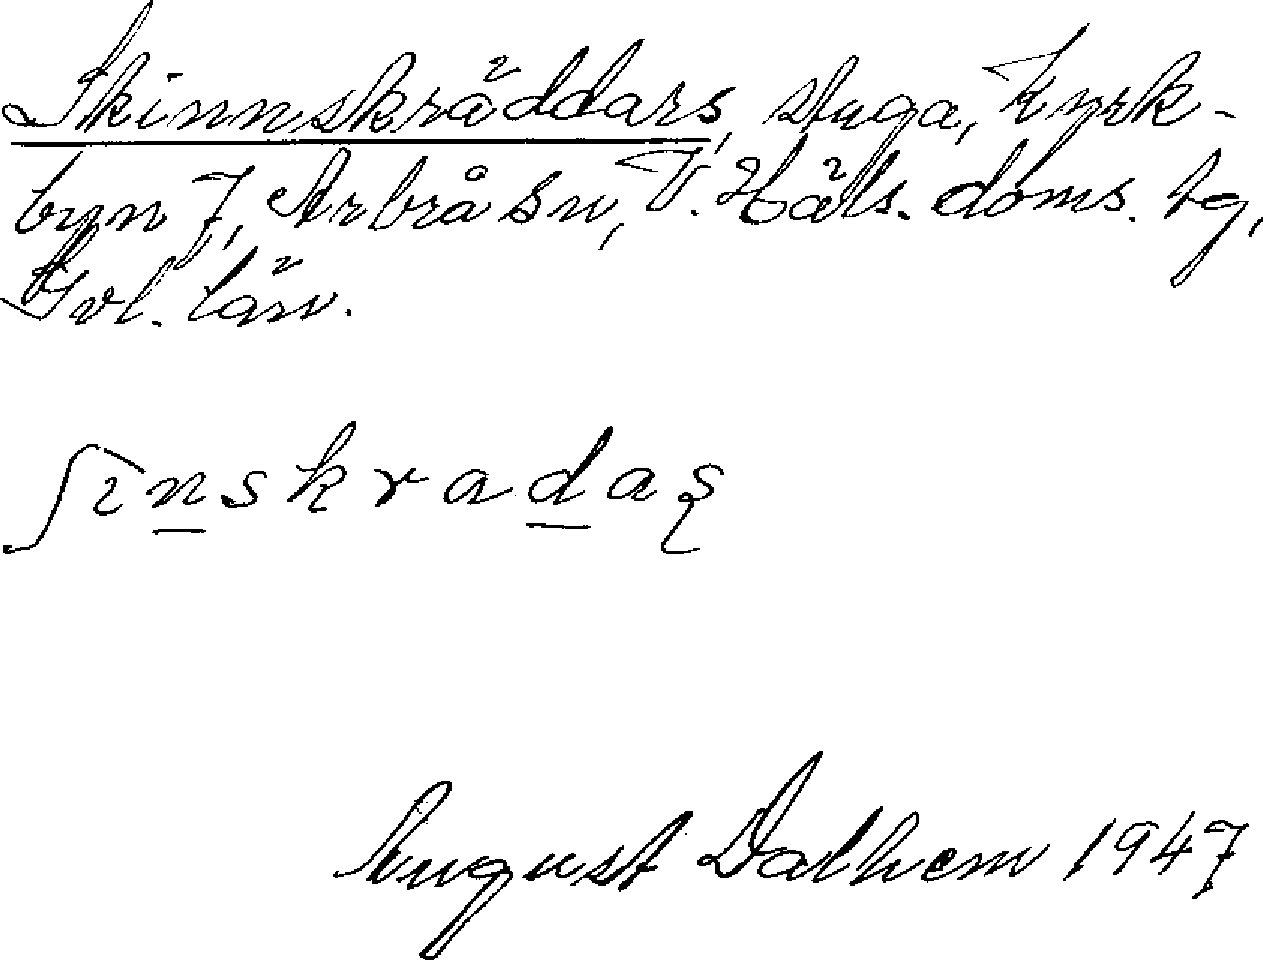 Skinnskräddars, stuga, Kyrk-
byn 7, Arbrå sn, V. Häls. doms. tg,
Gvl. län.
ʃɪnskradaș
August Dalhem 1947